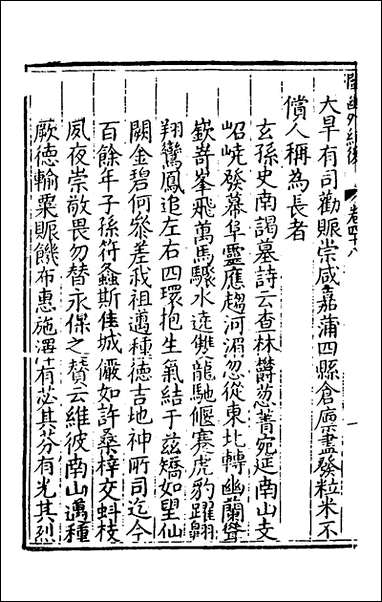 卷四十八
大旱有司勸賑崇咸嘉蒲四縣倉廩盡發粒米不
償人稱為長者
玄孫史南謁墓詩云查林欝葱菁宛延南山支
岹嶢發幕阜靈應趨河湄忽從東北轉幽蘭聳
嶔嵜峯飛萬馬驟水遶雙龍馳偃蹇虎豹躍翱
翔鸞鳳追左右四環抱生氣結于茲矯如望仙
闕金碧何參差我祖邁種德吉地神所司迄今
百餘年子孫符螽斯佳城儼如許桑梓交虯枝
夙夜崇敬畏勿替永保之贊云維彼南山邁種
厥德輸粟賑饑布惠施澤有苾其芬有光其烈